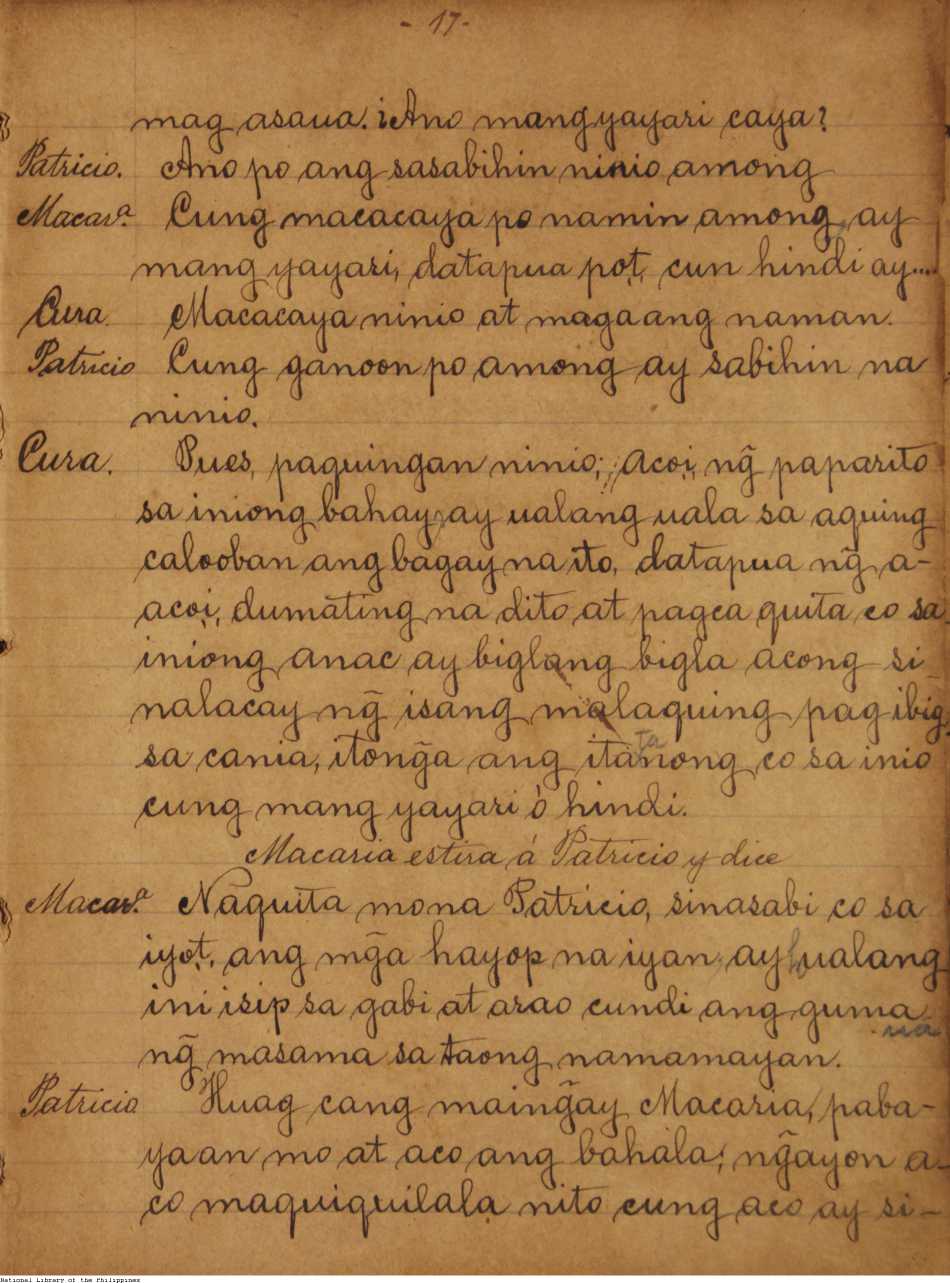 - 17-
mag asaua. ¿Ano mangyayari caya?
Patricio. Ano po ang sasabihin ninio among
Macar.ª Cung macacaya po namin among, ay
mang yayari, datapua pot, cun hindi ay....
Cura. Macacaya ninio at magaang naman.
Patricio Cung ganoon po among ay sabihin na
ninio.
Cura. Pues, paquingan ninio; Acoi, ng̃ paparito
sa iniong bahay, ay ualang uala sa aquing
calooban ang bagay na ito, datapua ng̃ a-
acoi, dumating na dito at pagca quita co sa
iniong anac ay biglang bigla acong si-
nalacay ng̃ isang malaquing pag ibig
sa cania, itong̃a ang itatanong co sa inio
cung mang yayari ó hindi.
Macaria estira á Patricio y dice
Macar.ª Naquita mo na Patricio, sinasabi co sa
iyot, ang mg̃a hayop na iyan, ay ualang
ini isip sa gabi at arao cundi ang guma
ua
ng̃ masama sa taong namamayan.
Patricio Huag cang maing̃ay Macaria, paba-
yaan mo at aco ang bahala; ng̃ayon a-
co maquiquilala nito cung aco ay si-
National Library of the Philippines